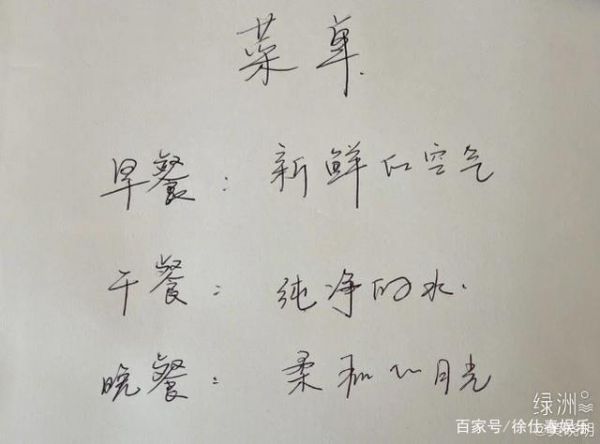 菜单
早餐：新鲜的空气
午餐：纯净的水.
晚餐：柔和的月光
绿洲
百家号/徐仕春娱乐